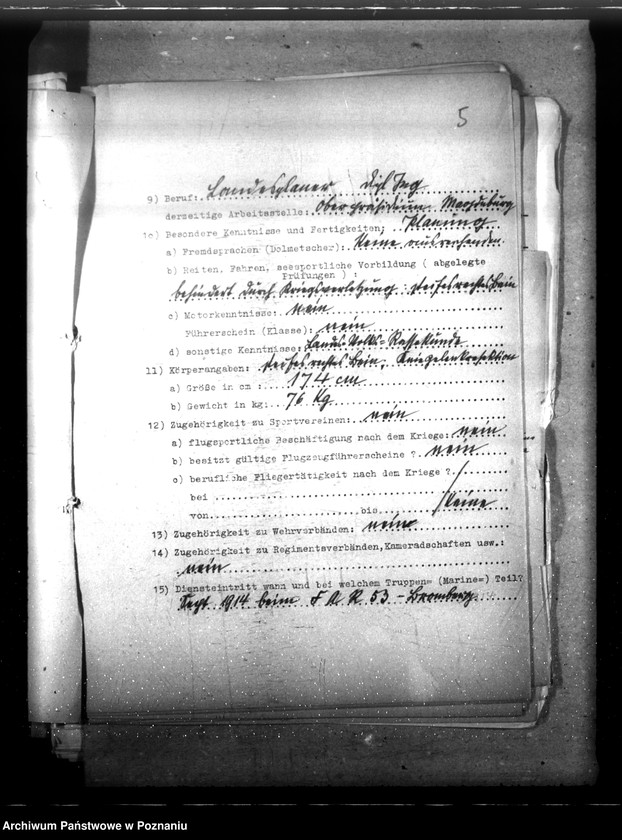 5
9) Beruf: Landesplaner Dipl Ing
derzeitige Arbeitsstelle: Oberpräsidium Magdeburg
Planung
10) Besondere Kenntnisse und Fertigkeiten:
a) Fremdsprachen (Dolmetscher): Keine ausreichenden
b) Reiten, Fahren, seesportliche Vorbildung ( abgelegte
Prüfungen ) :
behindert durch Kriegsverletzung: steifes rechtes Bein
c) Motorkenntnisse: nein
Führerschein (Klasse): nein
d) sonstige Kenntnisse: Lands-Volks-Rassekunde
11) Körperangaben: steifes rechtes Bein, Kniegelenkresektion
a) Größe in cm : 174 cm
b) Gewicht in kg: 76 Kg
12) Zugehörigkeit zu Sportvereinen: nein
a) flugsportliche Beschäftigung nach dem Kriege: nein
b) besitzt gültige Flugzeugführerscheine ? nein
c) berufliche Fliegertätigkeit nach dem Kriege ?
bei
von bis Keine
13) Zugehörigkeit zu Wehrverbänden: nein
14) Zugehörigkeit zu Regimentsverbänden, Kameradschaften usw.:
nein
15) Diensteintritt wann und bei welchem Truppen= (Marine=) Teil?
Sept 1914 beim F A R 53 - Bromberg
Archiwum Państwowe w Poznaniu